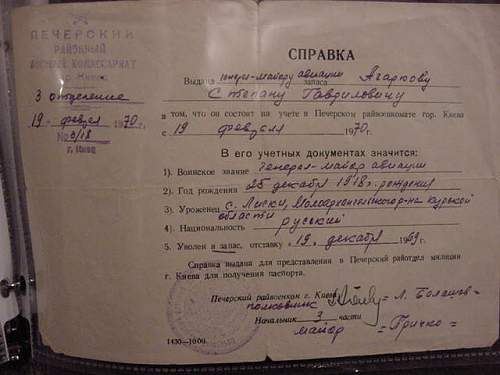 ПЕЧЕРСКИЙ
РАЙОННЫЙ
ВОЕННЫЙ КОМИССАРИАТ
г. Киева
3 отделение
19 феврал 1970 г.
г. Киев
СПРАВКА
Выдана генерал-майору авиации запаса Агарюову
Степану Гавриловичу
в том, что он состоит на учете в Печерском райвоенкомате гор. Киева
с 19 февраля 1970 г.
В его учетных документах значится:
1) Воинское звание генерал-майор авиации
2) Год рождения 25 декабря 1918 г. рождения
3) Уроженец с. Лиски, р-на Курской
области
4) Национальность русский
5. Уволен в запас, отставку „19„ декабря 1969 г.
Справка выдана для представления в Печерский райотдел милиции
г. Киева для получения паспорта.
Печерский райвоенком г. Киева
полковник = Л. Балашов =
Начальник 3 части
майор = Гричко =
1430—1000.